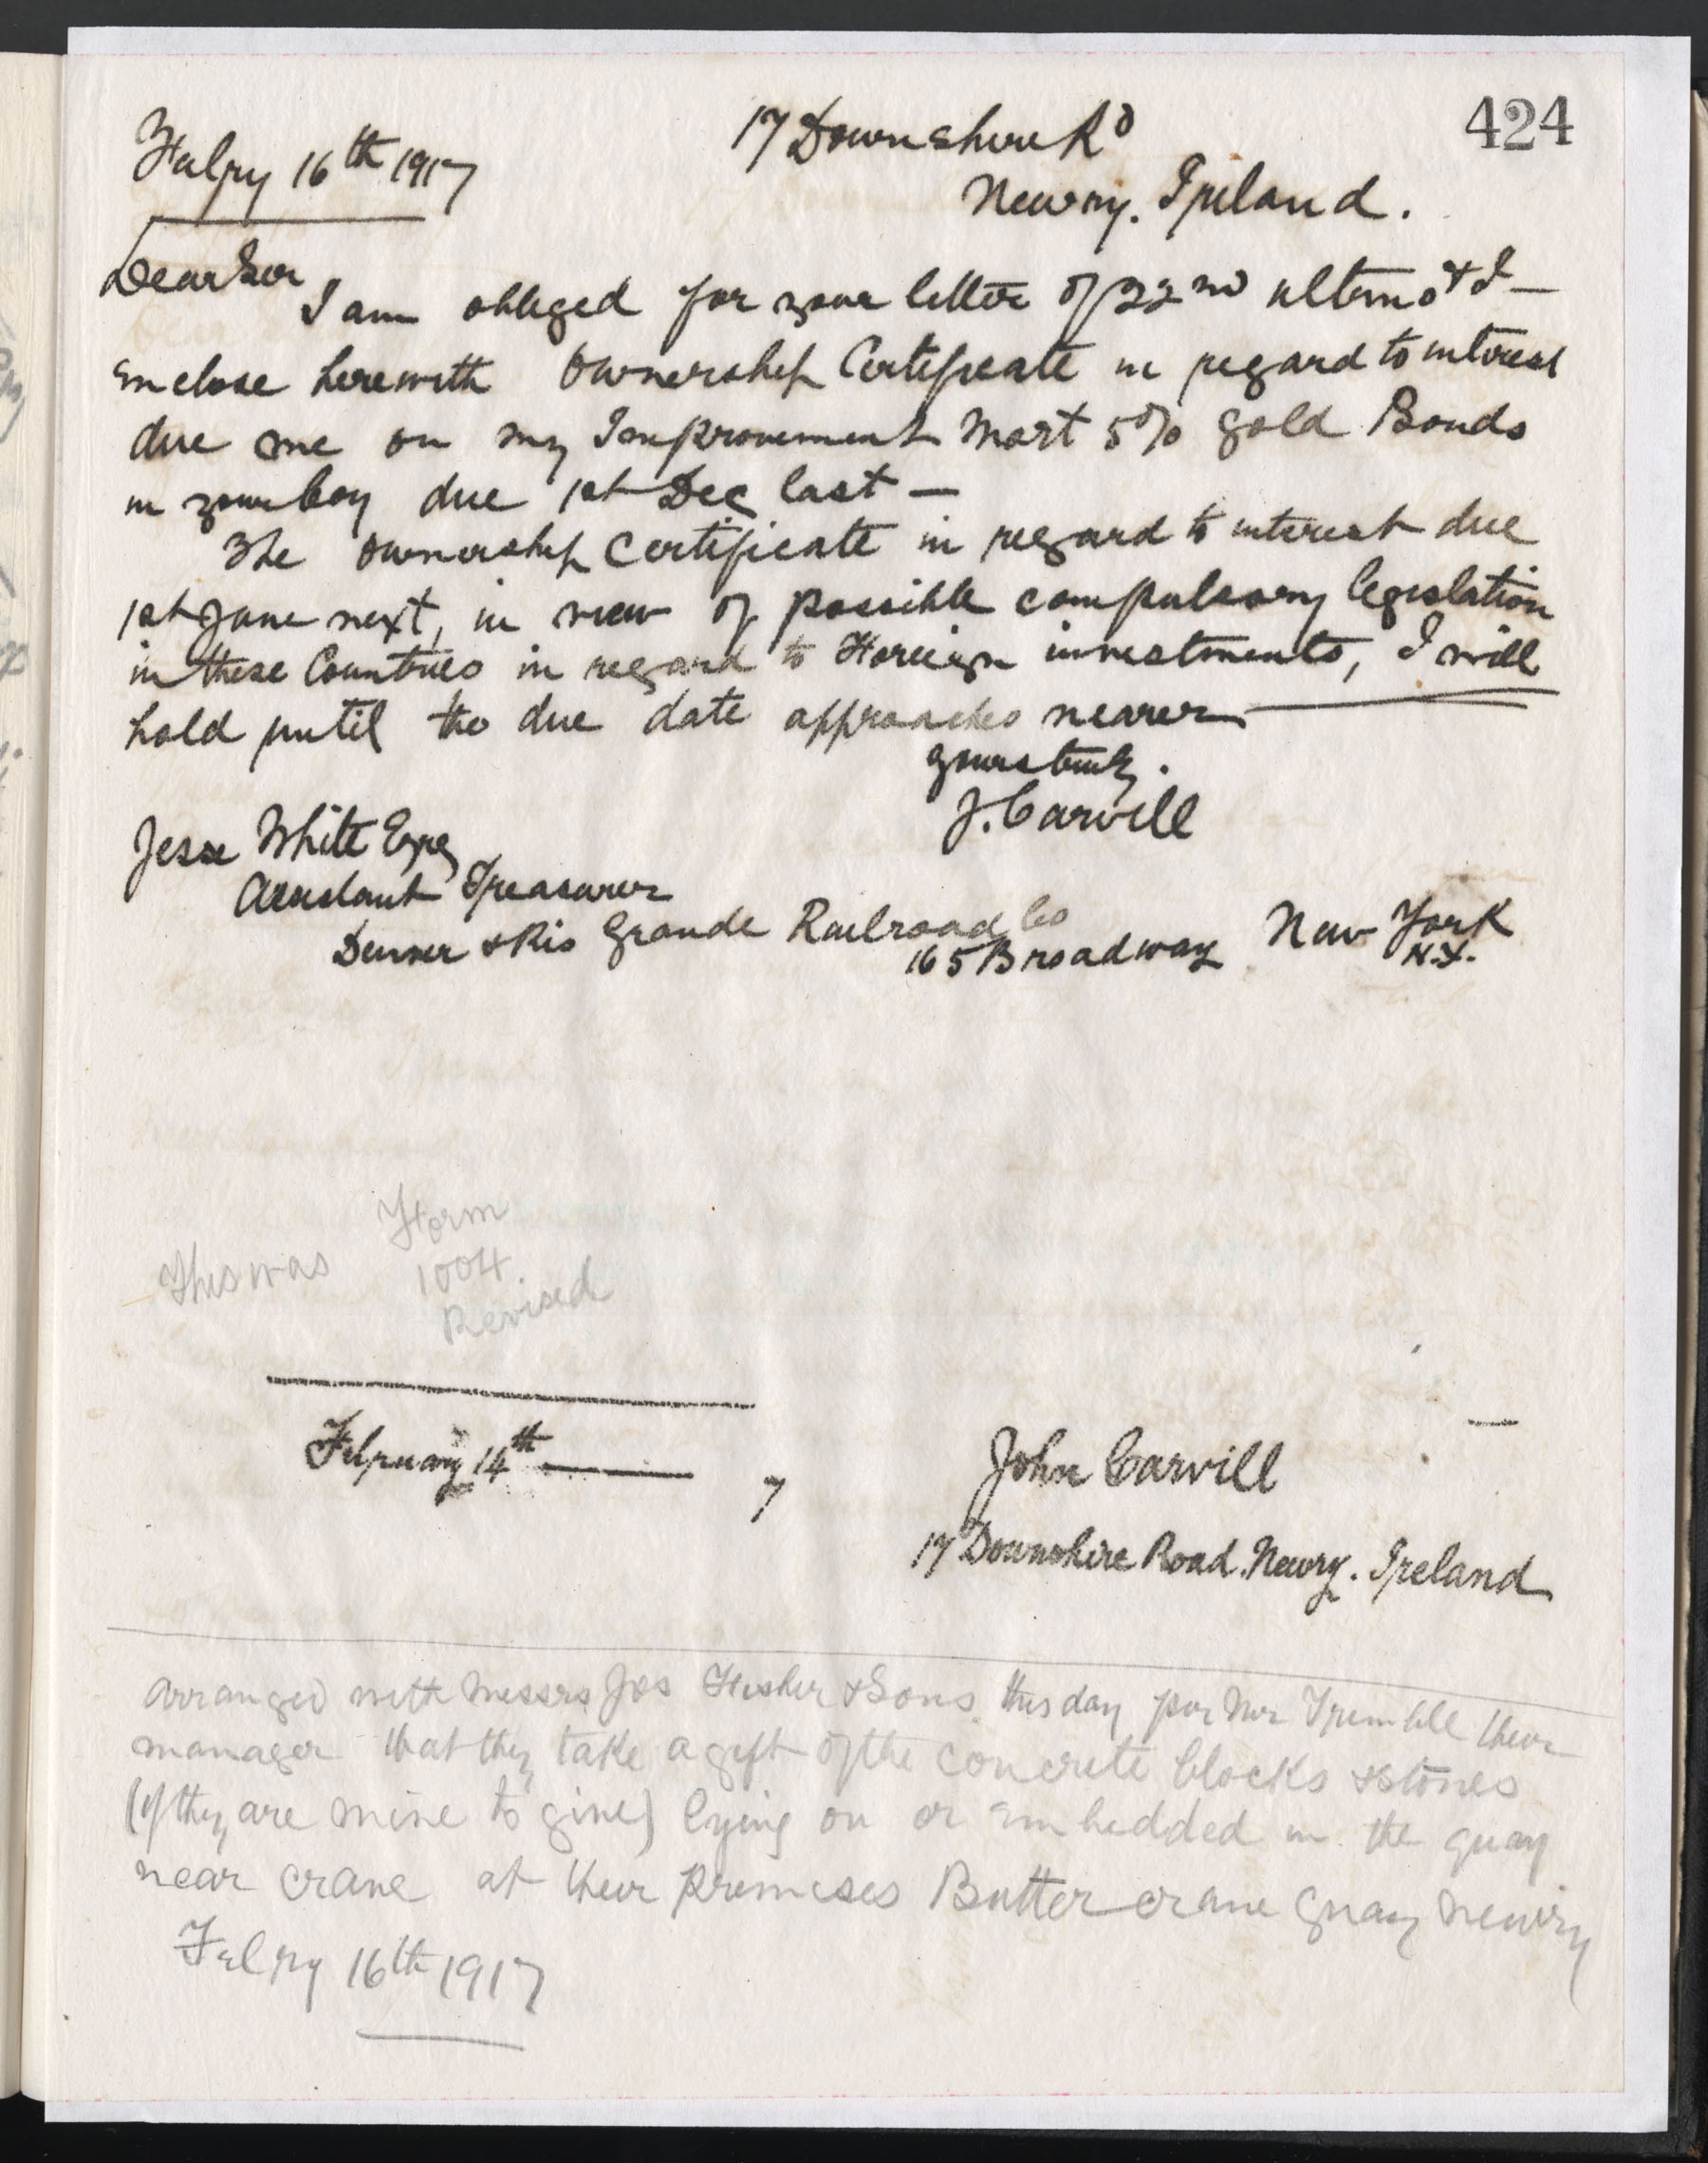 424
17 Downshire Rd
Febry 16th 1917
Newry. Ireland.
Dear Sir
I am obliged for your letter of 22nd ultimo & I —
enclose herewith Ownership Certificate in regard to interest
due me on my Improvement Mort 5% Gold Bonds
in your Coy due 1st Dec last —
The Ownership Certificate in regard to interest due
1st June next, in view of possible compulsory legislation
in these Countries in regard to Foreign investments, I will
hold until the due date approaches nearer
yours truly.
J. Carvill
Jesse White Esqre
Assistant Treasurer
Denver & Rio Grande Railroad Co
165 Broadway New York
N.Y.
Form
This was 1004
Revised
February 14th — 7
John Carvill
17 Downshire Road. Newry. Ireland
Arranged with Messrs Jos Fisher & Sons this day per Mr Tremble their
manager that they take a gift of the concrete blocks & stones
(if they are mine to give) lying on or embedded in the quay
near crane at their premises Butter crane Quay Newry
Febry 16th 1917